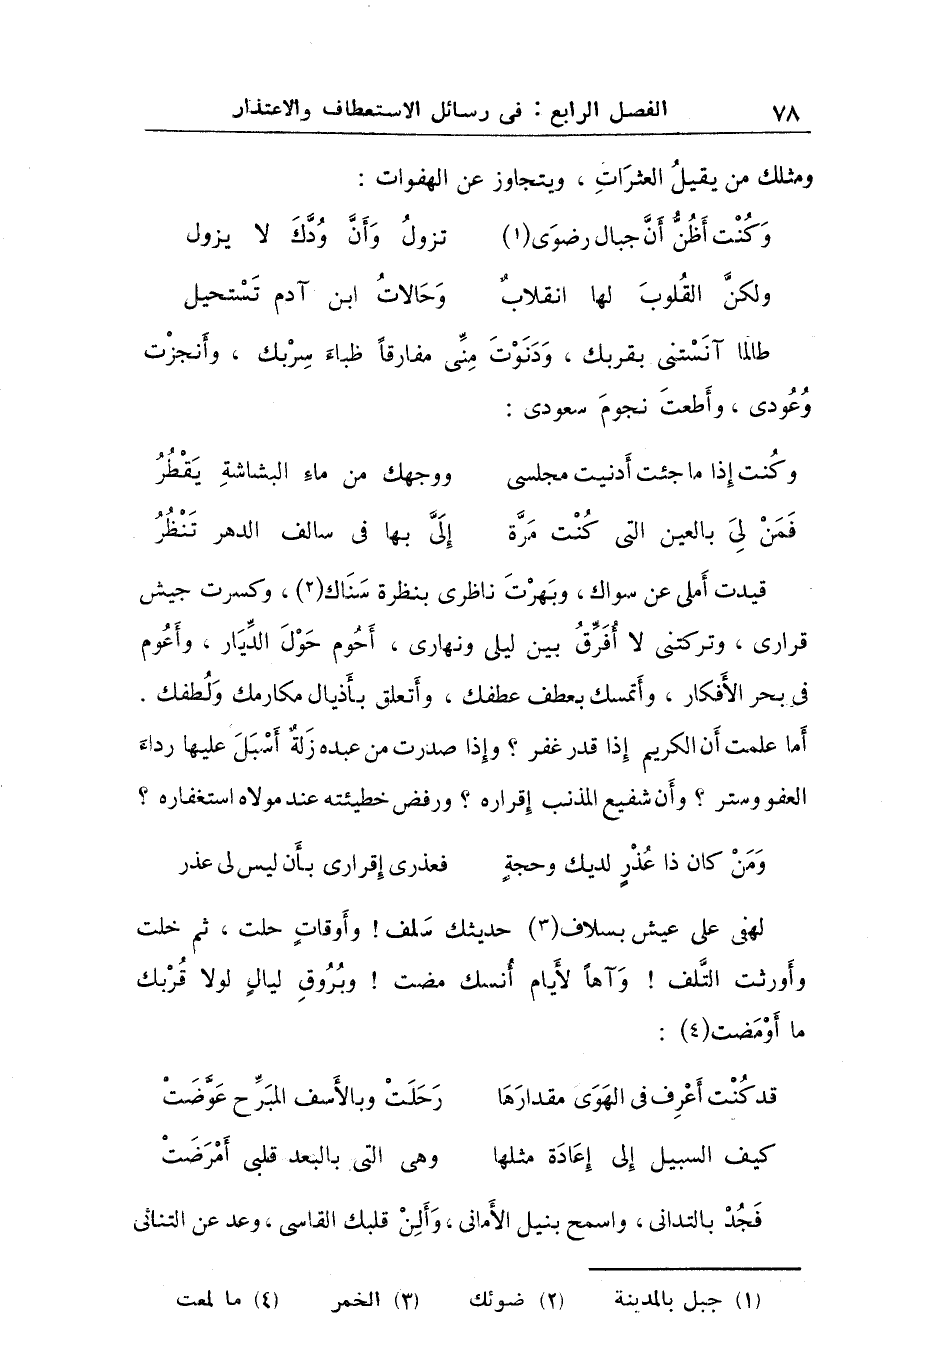 ٧٨ الفصل الرابع : فى رسائل الاستعطاف والاعتذار
ومثلك من يقيلُ العثرَاتِ ، ويتجاوز عن الهفوات :
وَكُنْت أَظُنُّ أَنَّ جبال رضوَى(١) تزولُ وَأَنَّ وُدَّكَ لا يزول
ولكنَّ القُلوبَ لها انقلابٌ وَحَالاتُ ابن آدم تَسْتحيل
طالما آنَسْتنى بقربك ، وَدَنَوْتَ مِنِّى مفارقاً ظباءَ سِرْبك ، وأَنجزْت
وُعُودى ، وأَطعتَ نجومَ سعودى :
وكُنت إذا ما جئت أَدنيت مجلسى ووجهك من ماءِ البشاشةِ يَقْطُرُ
فَمَنْ لِىَ بالعين التى كُنْت مَرَّة إِلَىَّ بها فى سالف الدهر تَنْظُرُ
قيدت أَملى عن سواك ، وبَهرْتَ ناظرى بنظرة سَنَاك(٢) ، وكسرت جيش
قرارى ، وتركتنى لا أُفَرِّقُ بين ليلى ونهارى ، أَحُوم حَوْلَ الدِّيَار ، وأَعُوم
فى بحر الأَفكار ، وأَتمسك بعطف عطفك ، وأَتعلق بأَذيال مكارمك ولُطفك .
أَما علمت أَن الكريم إِذا قدر غفر ؟ وإِذا صدرت من عبده زَلةٌ أَسْبَلَ عليها رداءَ
العفو وستر ؟ وأَن شفيع المذنب إِقراره ؟ ورفض خطيئته عند مولاه استغفاره ؟
وَمَنْ كان ذا عُذْرٍ لديك وحجةٍ فعذرى إِقرارى بأَن ليس لى عذر
لهفى على عيش بسلاف(٣) حديثك سَلف ! وأَوقاتٍ حلت ، ثم خلت
وأَورثت التَّلف ! وَآهاً لأَيامِ أُنسك مضت ! وبُرُوقِ ليالٍ لولا قُرْبك
ما أَوْمَضت(٤) :
قد كُنْت أَعْرِف فى الهَوَى مقدارَهَا رَحَلَتْ وبالأَسف المبَرِّح عَوَّضَتْ
كيف السبيل إِلى إِعَادَة مثلها وهى التى بالبعد قلبى أَمْرَضَتْ
فَجُدْ بالتدانى ، واسمح بنيل الأَمانى ، وَأَلِنْ قلبك القاسى ، وعد عن التنائى
(١) جبل بالمدينة (٢) ضوئك (٣) الخمر (٤) ما لمعت